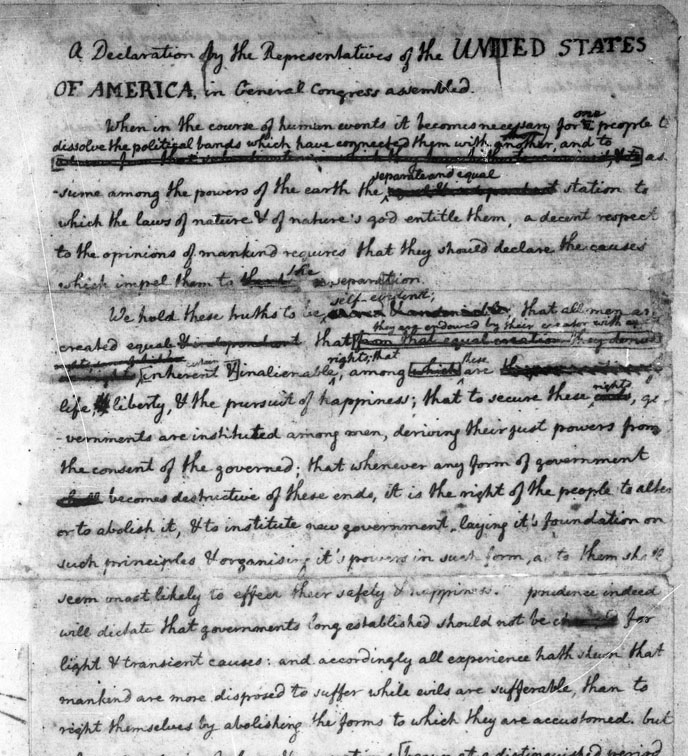 A Declaration by the Representatives of the UNITED STATES
OF AMERICA, in General Congress assembled.
When in the course of human events it becomes necessary for one people to
dissolve the political bands which have connected them with another, and to
as
separate and equal
-sume among the powers of the earth the station to
which the laws of nature & of nature's god entitle them, a decent respect
to the opinions of mankind requires that they should declare the causes
which impel them to the separation.
self-evident;
We hold these truths to be that all men are
they are endowed by their creator with
created equal & independant that from that equal creation they derive
certain
rights; that
these
inherent & inalienable, among which are
rights
life, liberty, & the pursuit of happiness; that to secure these ends, go-
-vernments are instituted among men, deriving their just powers from
the consent of the governed; that whenever any form of government
becomes destructive of these ends, it is the right of the people to alter
or to abolish it, & to institute new government, laying it's foundation on
such principles & organising it's powers in such form, as to them shall
seem most likely to effect their safety & happiness. prudence indeed
will dictate that governments long established should not be changed for
light & transient causes: and accordingly all experience hath shewn that
mankind are more disposed to suffer while evils are sufferable, than to
right themselves by abolishing the forms to which they are accustomed. but
at a distinguished period